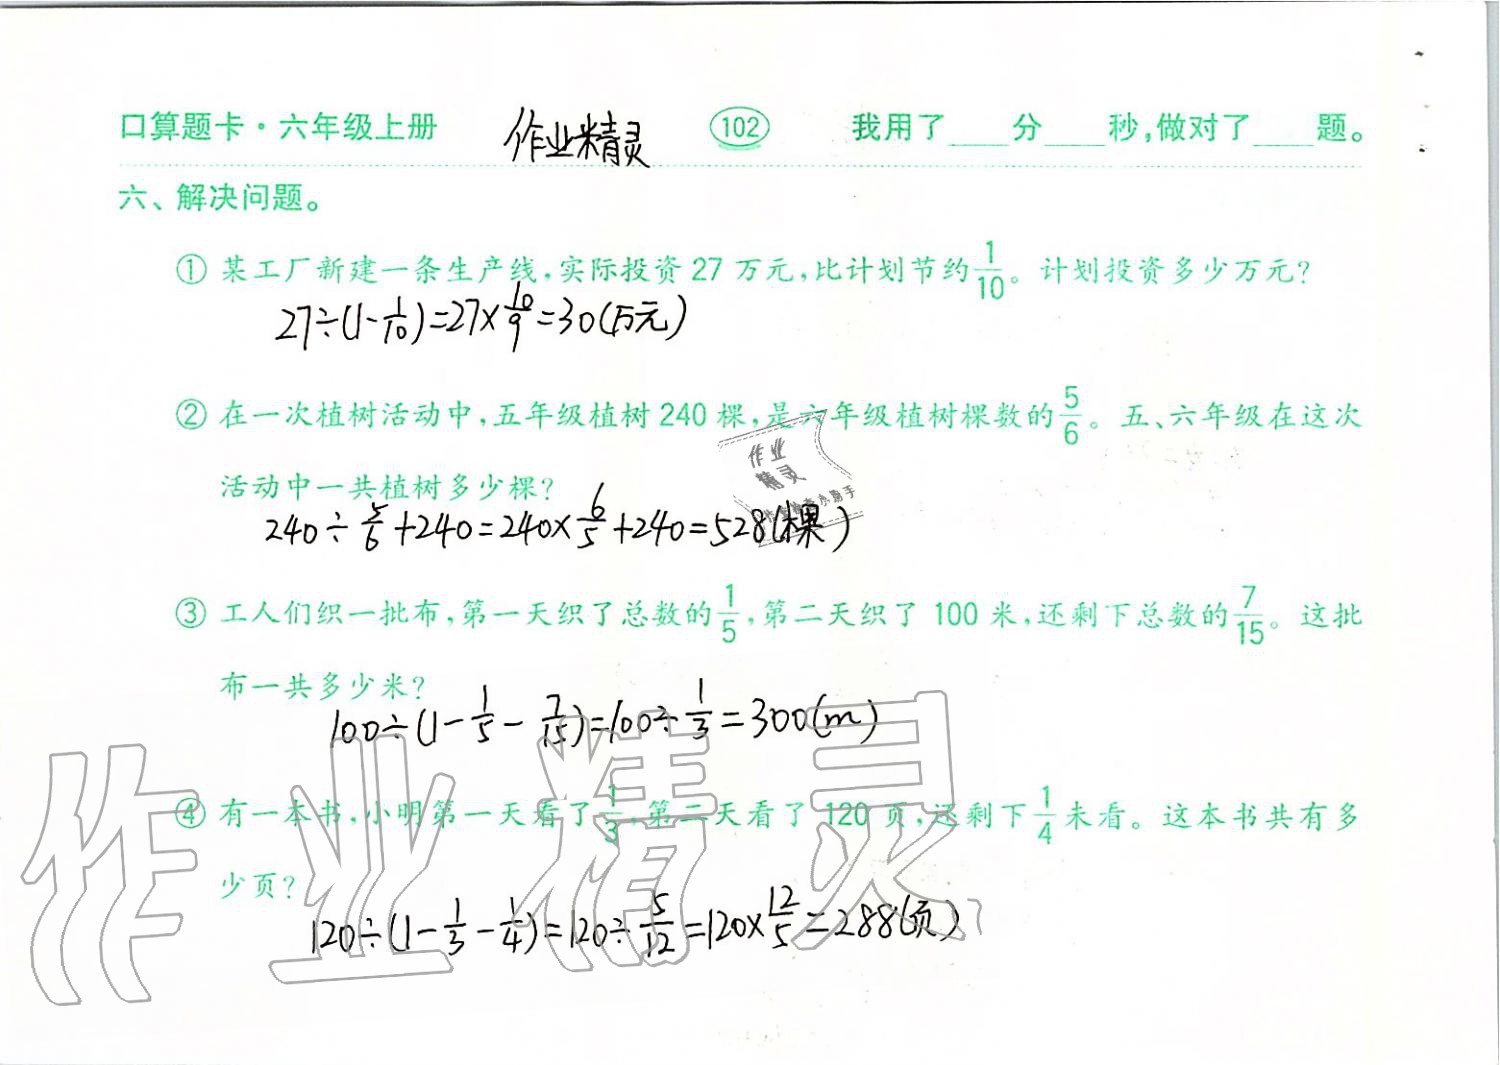 口算题卡·六年级上册 作业精灵 102 我用了____分____秒,做对了____题。
六、解决问题。
① 某工厂新建一条生产线,实际投资27万元,比计划节约1/10。计划投资多少万元?
27÷(1-1/10)=27×10/9=30(万元)
② 在一次植树活动中,五年级植树240棵,是六年级植树棵数的5/6。五、六年级在这次
活动中一共植树多少棵?
240÷5/6+240=240×6/5+240=528(棵)
作业
精灵
③ 工人们织一批布,第一天织了总数的1/5,第二天织了100米,还剩下总数的7/15。这批
布一共多少米?
100÷(1-1/5-7/15)=100÷1/3=300(m)
④ 有一本书,小明第一天看了1/3,第二天看了120页,还剩下1/4未看。这本书共有多
少页?
120÷(1-1/3-1/4)=120÷5/12=120×12/5=288(页)
作业精灵